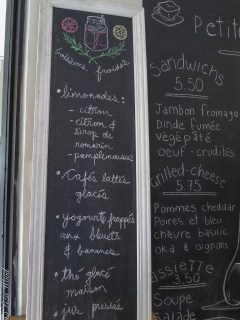 froides
• limonades :
- citron
- citron &
sirop de
romarin
- pamplemousse
• Cafés lattés
glacés
• yogourts frappés
aux bleuets
& bananes
• thé glacé
maison
• jus pressés
Petite
Sandwichs
5.50
Jambon fromage
Dinde fumée
végépâté
oeuf - crudités
Grilled-cheese
5.75
Pommes cheddar
Poires et bleu
chèvre basilic
oka & oignons
assiette
5.50
Soupe
Salade